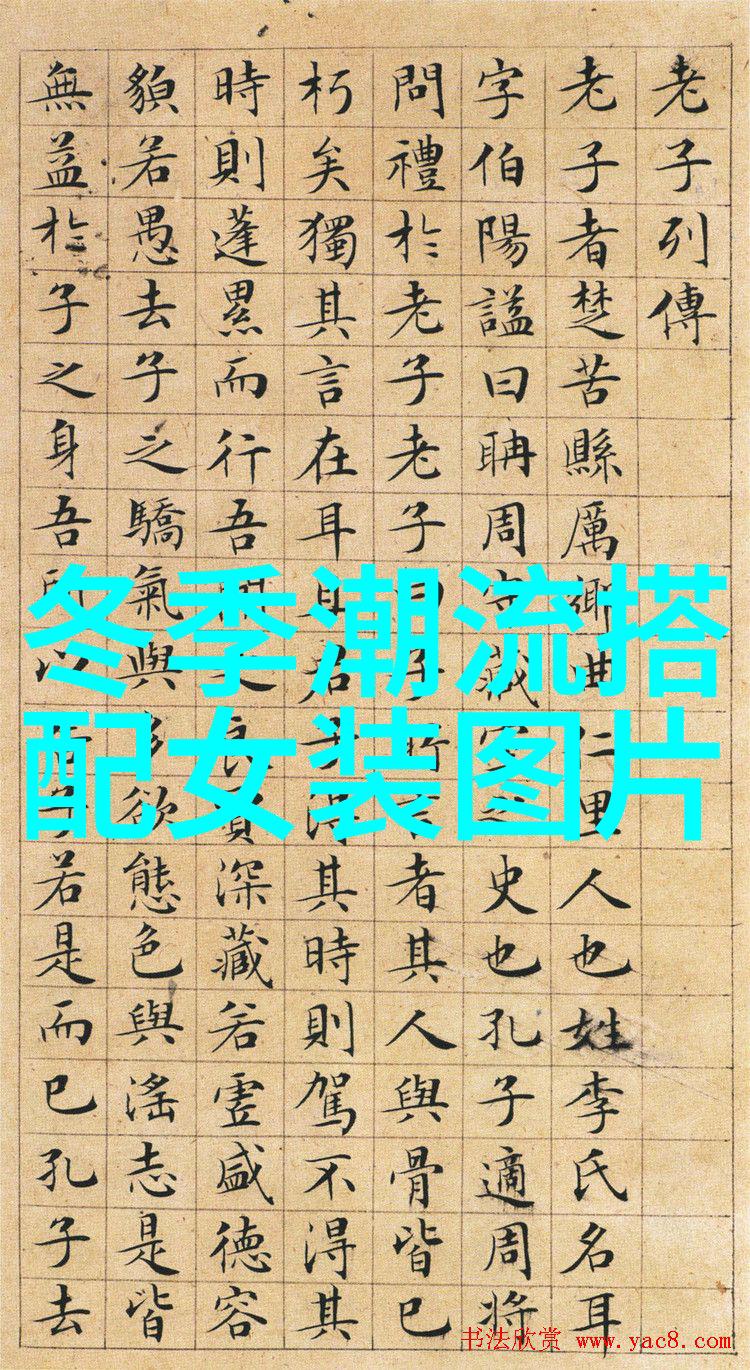 老子列傳
老子者楚苦縣厲鄉曲仁里人也姓李氏名耳
字伯陽謚曰聃周守藏室之史也孔子適周將
問禮於老子老子曰子所言者其人與骨皆已
朽矣獨其言在耳且君子得其時則駕不得其
時則蓬累而行吾聞之良賈深藏若虛盛德容
䫉若愚去子之驕氣與多欲態色與滛志是皆
無益於子之身吾所以告子若是而已孔子去
冬季潮流搭
配女装图片
书法欣赏 www.yac8.com